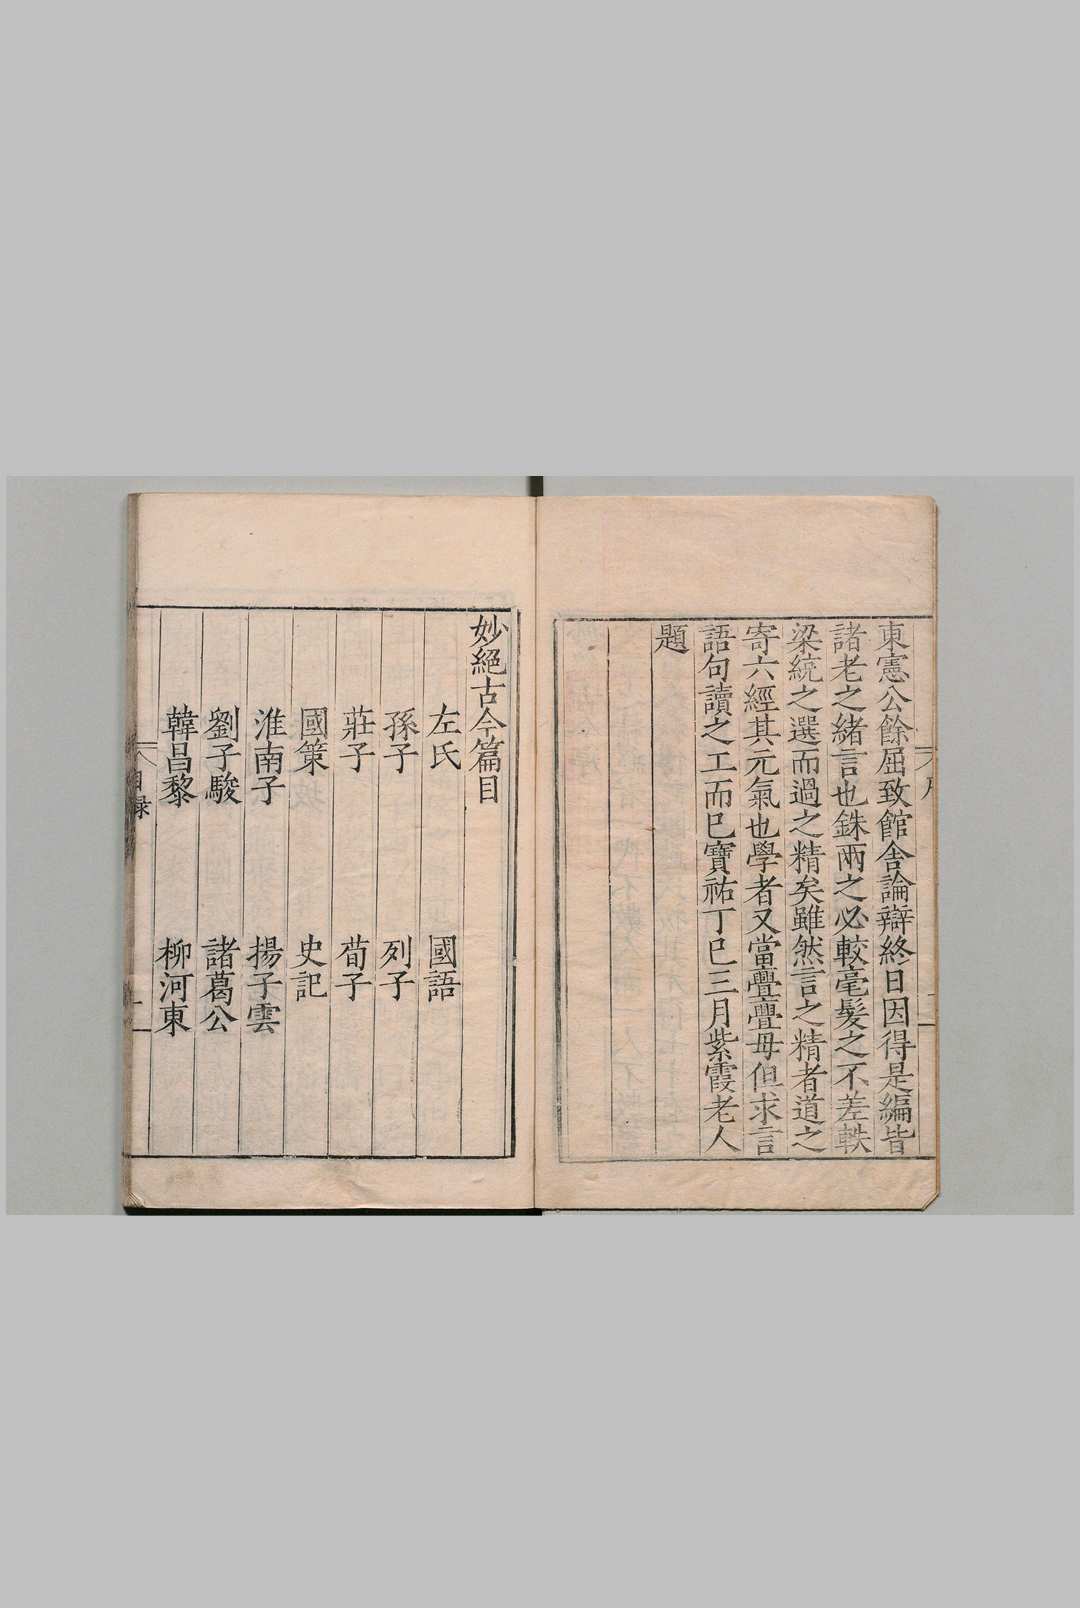 東憲公餘屈致館舍論辯終日因得是編皆
諸老之緒言也銖兩之必較毫髮之不差軼
梁統之選而過之精矣雖然言之精者道之
寄六經其元氣也學者又當亹亹毋但求言
語句讀之工而已寶祐丁巳三月紫霞老人
題
妙絕古今篇目
左氏 國語
孫子 列子
莊子 荀子
國策 史記
淮南子 揚子雲
劉子駿 諸葛公
韓昌黎 柳河東
目录 一